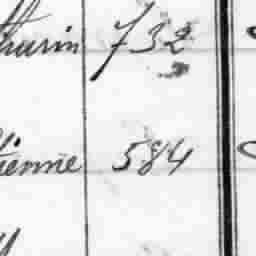 thurin 732
ienne 584